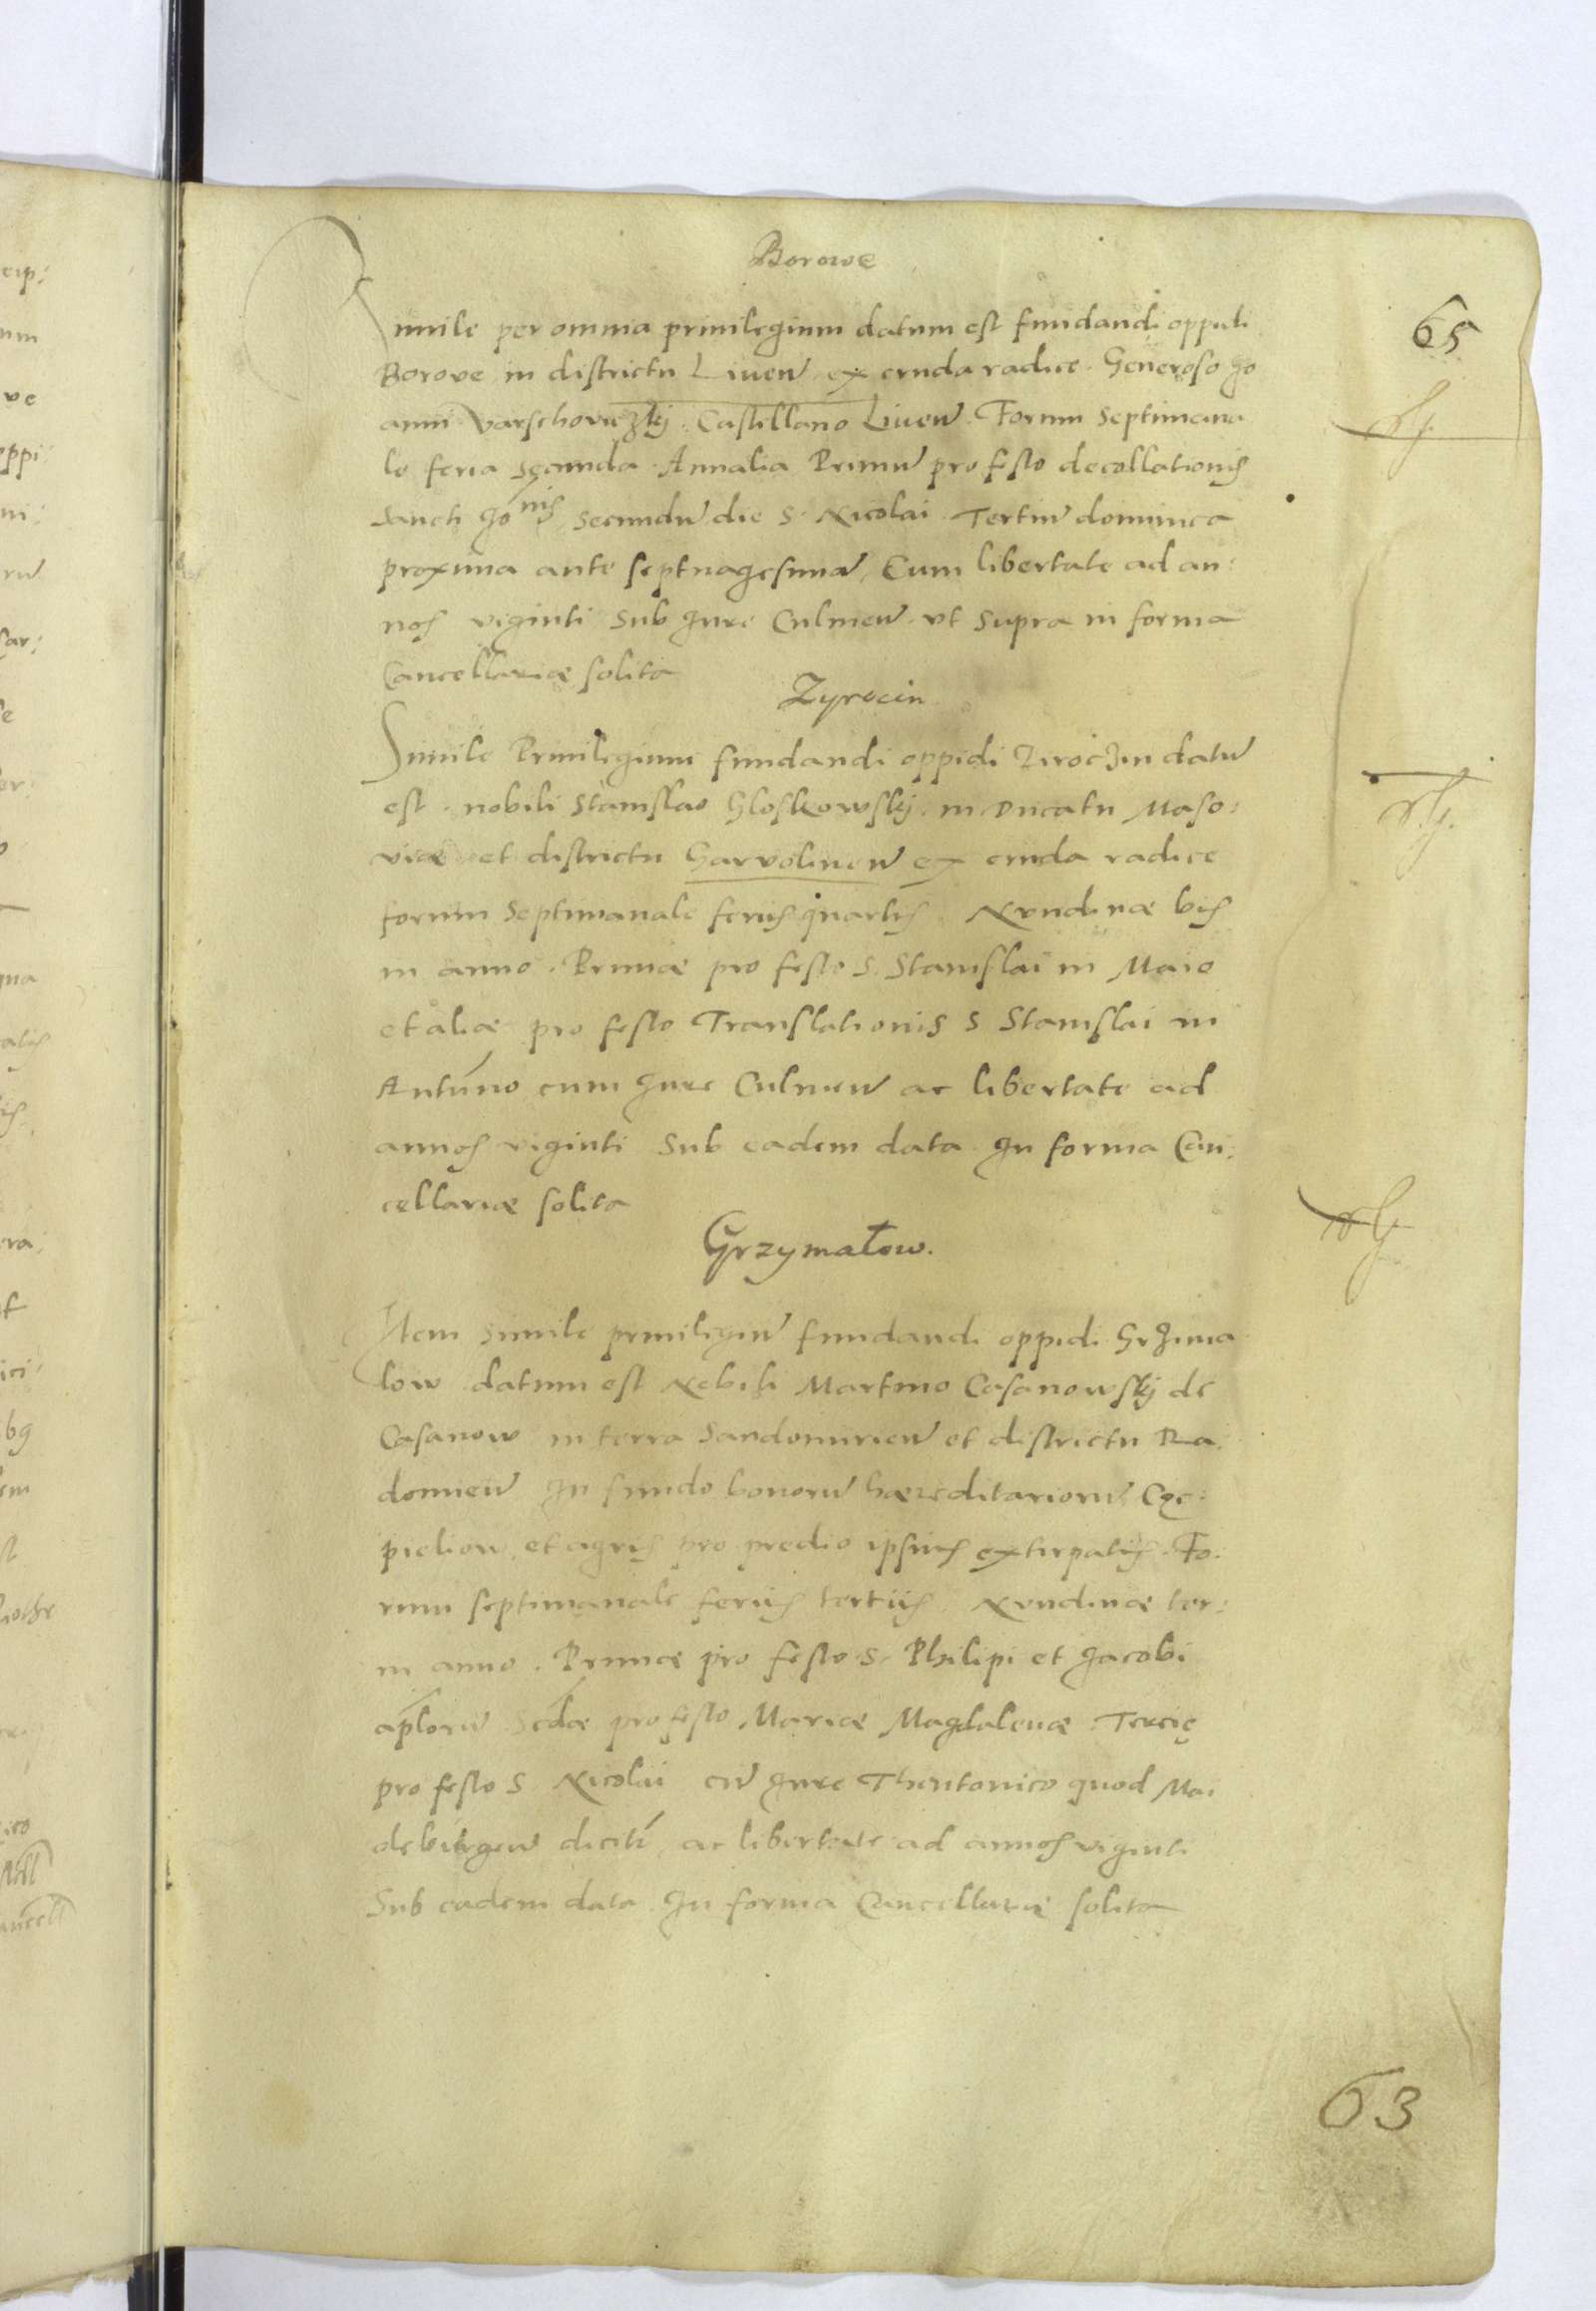 Borowe
65
Simile per omnia privilegium datum est fundandi oppidi
Borove in districtu Liuen̄ ex cruda radice Generoso Jo
anni Varschoviczkÿ Castellano Liuen̄ Forum Septimana
le feria secunda Annalia Primū pro festo decollationis
Sancti Joānis secundū die S. Nicolai Tertiū dominica
proxima ante septuagesimā, Cum libertate ad an:
nos viginti Sub Jure Culmen̄ vt Supra in forma
Cancellariæ solita
Zyrocin
Simile Privilegium fundandi oppidi Ziroczin datū
est nobili Stanislao Gloskowskÿ in Ducatu Maso:
viæ et districtu Garvolinen̄ ex cruda radice
forum Septimanale feriis quartis Nundinæ bis
in anno. Primæ pro festo S. Stanislai in Maio
et aliæ pro festo Translationis S Stanislai in
Autūno cum Jure Culmen̄ ac libertate ad
annos viginti Sub eadem data In forma Can:
cellariæ solita
Grzymałow.
Item Simile privilegiū fundandi oppidi Grzima
low datum est Nobili Martino Casanowskÿ de
Casanow in terra Sandomirien̄ et districtu Ra
domien̄ In fundo bonorū hæreditariorū Cze:
pieliow et agris pro predio ipsius extirpatis. Fo:
rum septimanale feriis tertiis Nundinæ ter:
in anno. Primæ pro festo S. Philipi et Jacobi
ap̄lorū Sec̄dæ pro festo Mariæ Magdalenæ Tercię
pro festo S Nicolai cū Jure Theutonico quod Mai
deburgen̄ dicit̄ ac libertate ad annos viginti
Sub eadem data In forma Cancellariæ solita
63